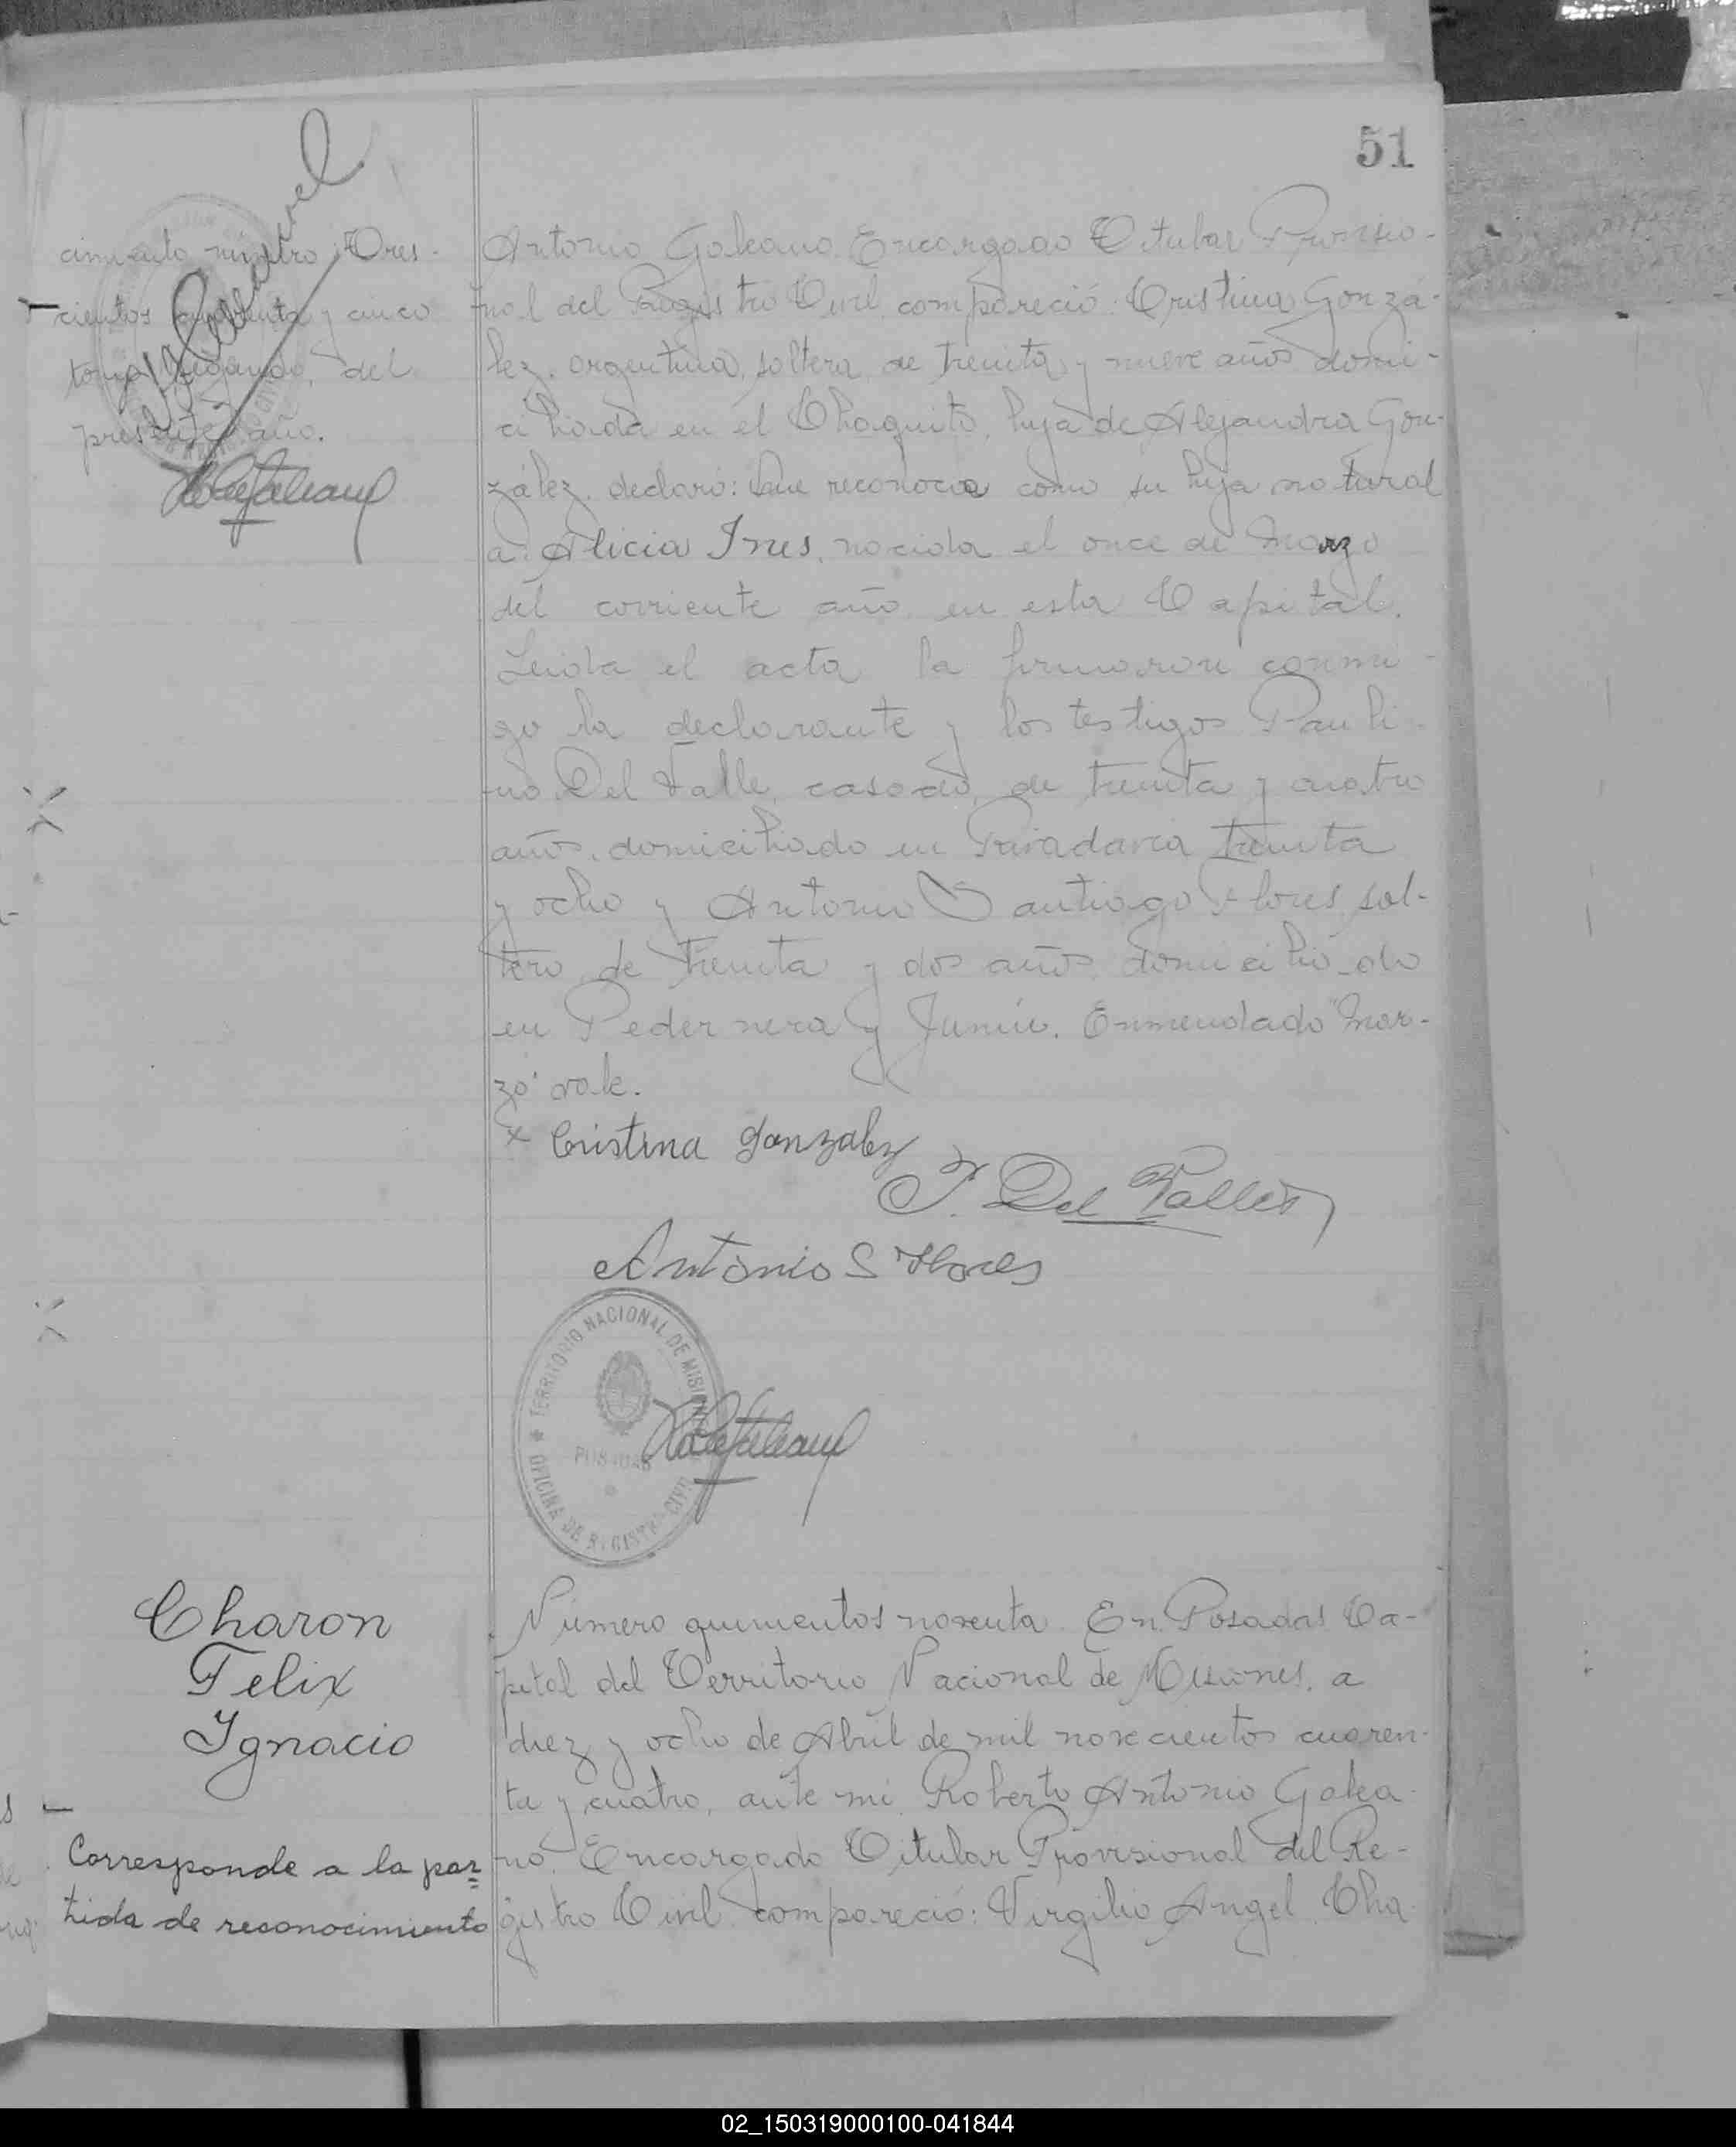 51
cimiento número Tres-
cientos cuarenta y cinco
tomo segundo, del
presente año.
Antonio Galeano Encargado Titular Provisio-
nal del Registro Civil, compareció: Cristina Gonzá-
lez, argentina, soltera, de treinta y nueve años, domi-
ciliada en el Chaquito, hija de Alejandra Gon-
zález, declaró: Que reconocía como su hija natural
a: Alicia Ines, nacida el once de Marzo
del corriente año, en esta Capital.
Leida el acta la firmaron conmi-
go la declarante y los testigos Pauli-
no Del Valle, casado, de treinta y cuatro
años, domiciliado en Rivadavia treinta
y ocho y Antonio Santiago Flores, sol-
tero, de treinta y dos años, domiciliado
en Pedernera y Junín. Enmendado "Mar-
zo" vale.
x Cristina Gonzalez
P. Del Valle
Antonio S Flores
TERRITORIO NACIONAL DE MISIONES
POSADAS
OFICINA DE REGISTRO CIVIL
Charon
Felix
Ignacio
Corresponde a la par
tida de reconocimiento
Número quinientos noventa. En Posadas Ca-
pital del Territorio Nacional de Misiones, a
diez y ocho de Abril de mil novecientos cuaren-
ta y cuatro, ante mi, Roberto Antonio Galea-
no, Encargado Titular Provisional del Re-
gistro Civil, compareció: Virgilio Angel Cha-
02_150319000100-041844